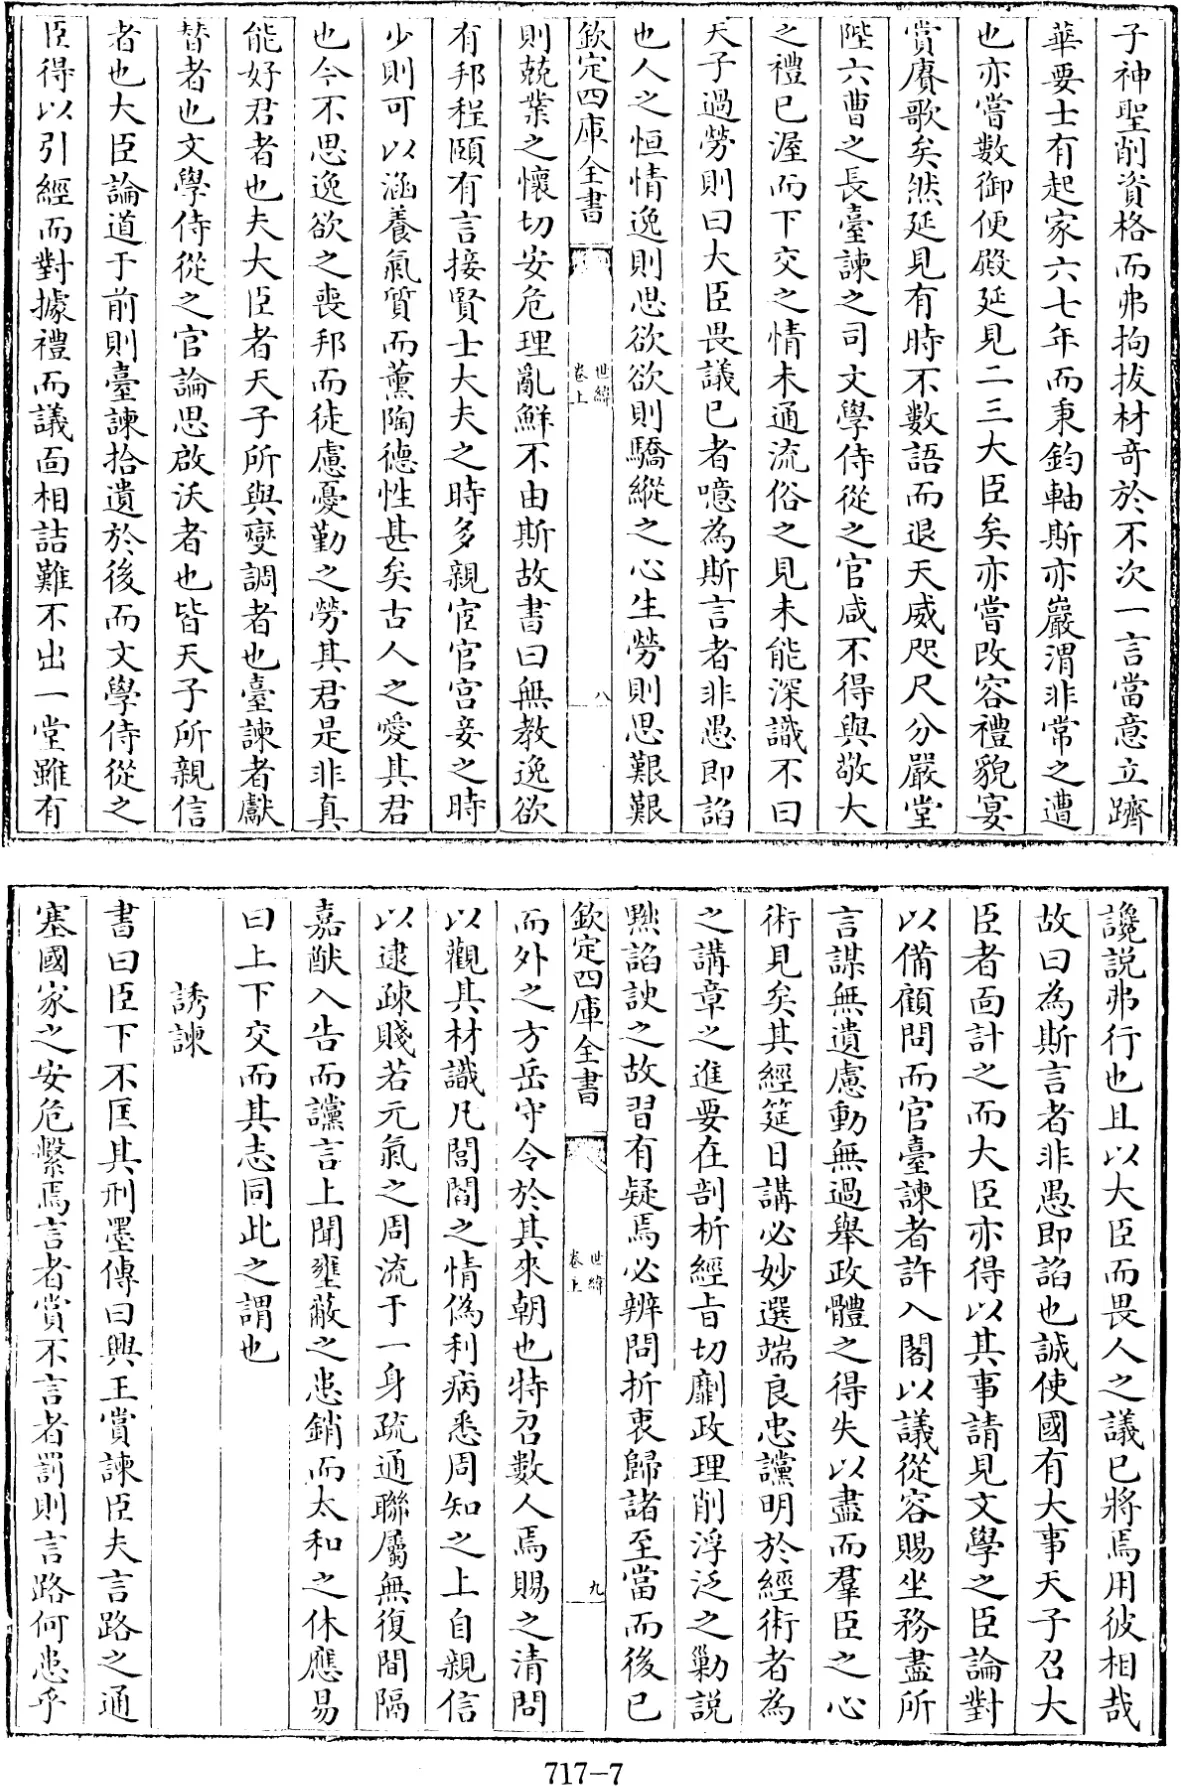 子神聖削資格而弗拘拔材竒於不次一言當意立躋
華要士有起家六七年而秉鈞軸斯亦嚴渭非常之遭
也亦嘗數御便殿延見二三大臣矣亦嘗改容禮貌宴
賞賡歌矣然延見有時不數語而退天威咫尺分嚴堂
陛六曹之長臺諫之司文學侍從之官咸不得與敬大
之禮已渥而下交之情未通流俗之見未能深識不曰
天子過勞則曰大臣畏議已者噫為斯言者非愚即諂
也人之恒情逸則思欲欲則驕縱之心生勞則思艱艱
欽定四庫全書
世緯
卷上
八
則兢業之懷切安危理亂鮮不由斯故書曰無教逸欲
有邦程頤有言接賢士大夫之時多親宦官宫妾之時
少則可以涵養氣質而薰陶德性甚矣古人之愛其君
也今不思逸欲之喪邦而徒慮憂勤之勞其君是非真
能好君者也夫大臣者天子所與燮調者也臺諫者獻
替者也文學侍從之官論思啟沃者也皆天子所親信
者也大臣論道于前則臺諫拾遺於後而文學侍從之
臣得以引經而對據禮而議面相詰難不出一堂雖有
讒説弗行也且以大臣而畏人之議已將焉用彼相哉
故曰為斯言者非愚即諂也誠使國有大事天子召大
臣者面計之而大臣亦得以其事請見文學之臣論對
以備顧問而官臺諫者許入閣以議從容賜坐務盡所
言謀無遺慮動無過舉政體之得失以盡而羣臣之心
術見矣其經筵日講必妙選端良忠讜明於經術者為
之講章之進要在剖析經㫖切劘政理削浮泛之勦説
黜諂諛之故習有疑焉必辨問折衷歸諸至當而後已
欽定四庫全書
世緯
卷上
九
而外之方岳守令於其來朝也特召數人焉賜之清問
以觀其材識凡閭閻之情偽利病悉周知之上自親信
以逮疎賤若元氣之周流于一身疏通聯屬無復間隔
嘉猷入告而讜言上聞壅蔽之患銷而太和之休應易
曰上下交而其志同此之謂也
誘諫
書曰臣下不匡其刑墨傳曰興王賞諫臣夫言路之通
塞國家之安危繫焉言者賞不言者罰則言路何患乎
717-7